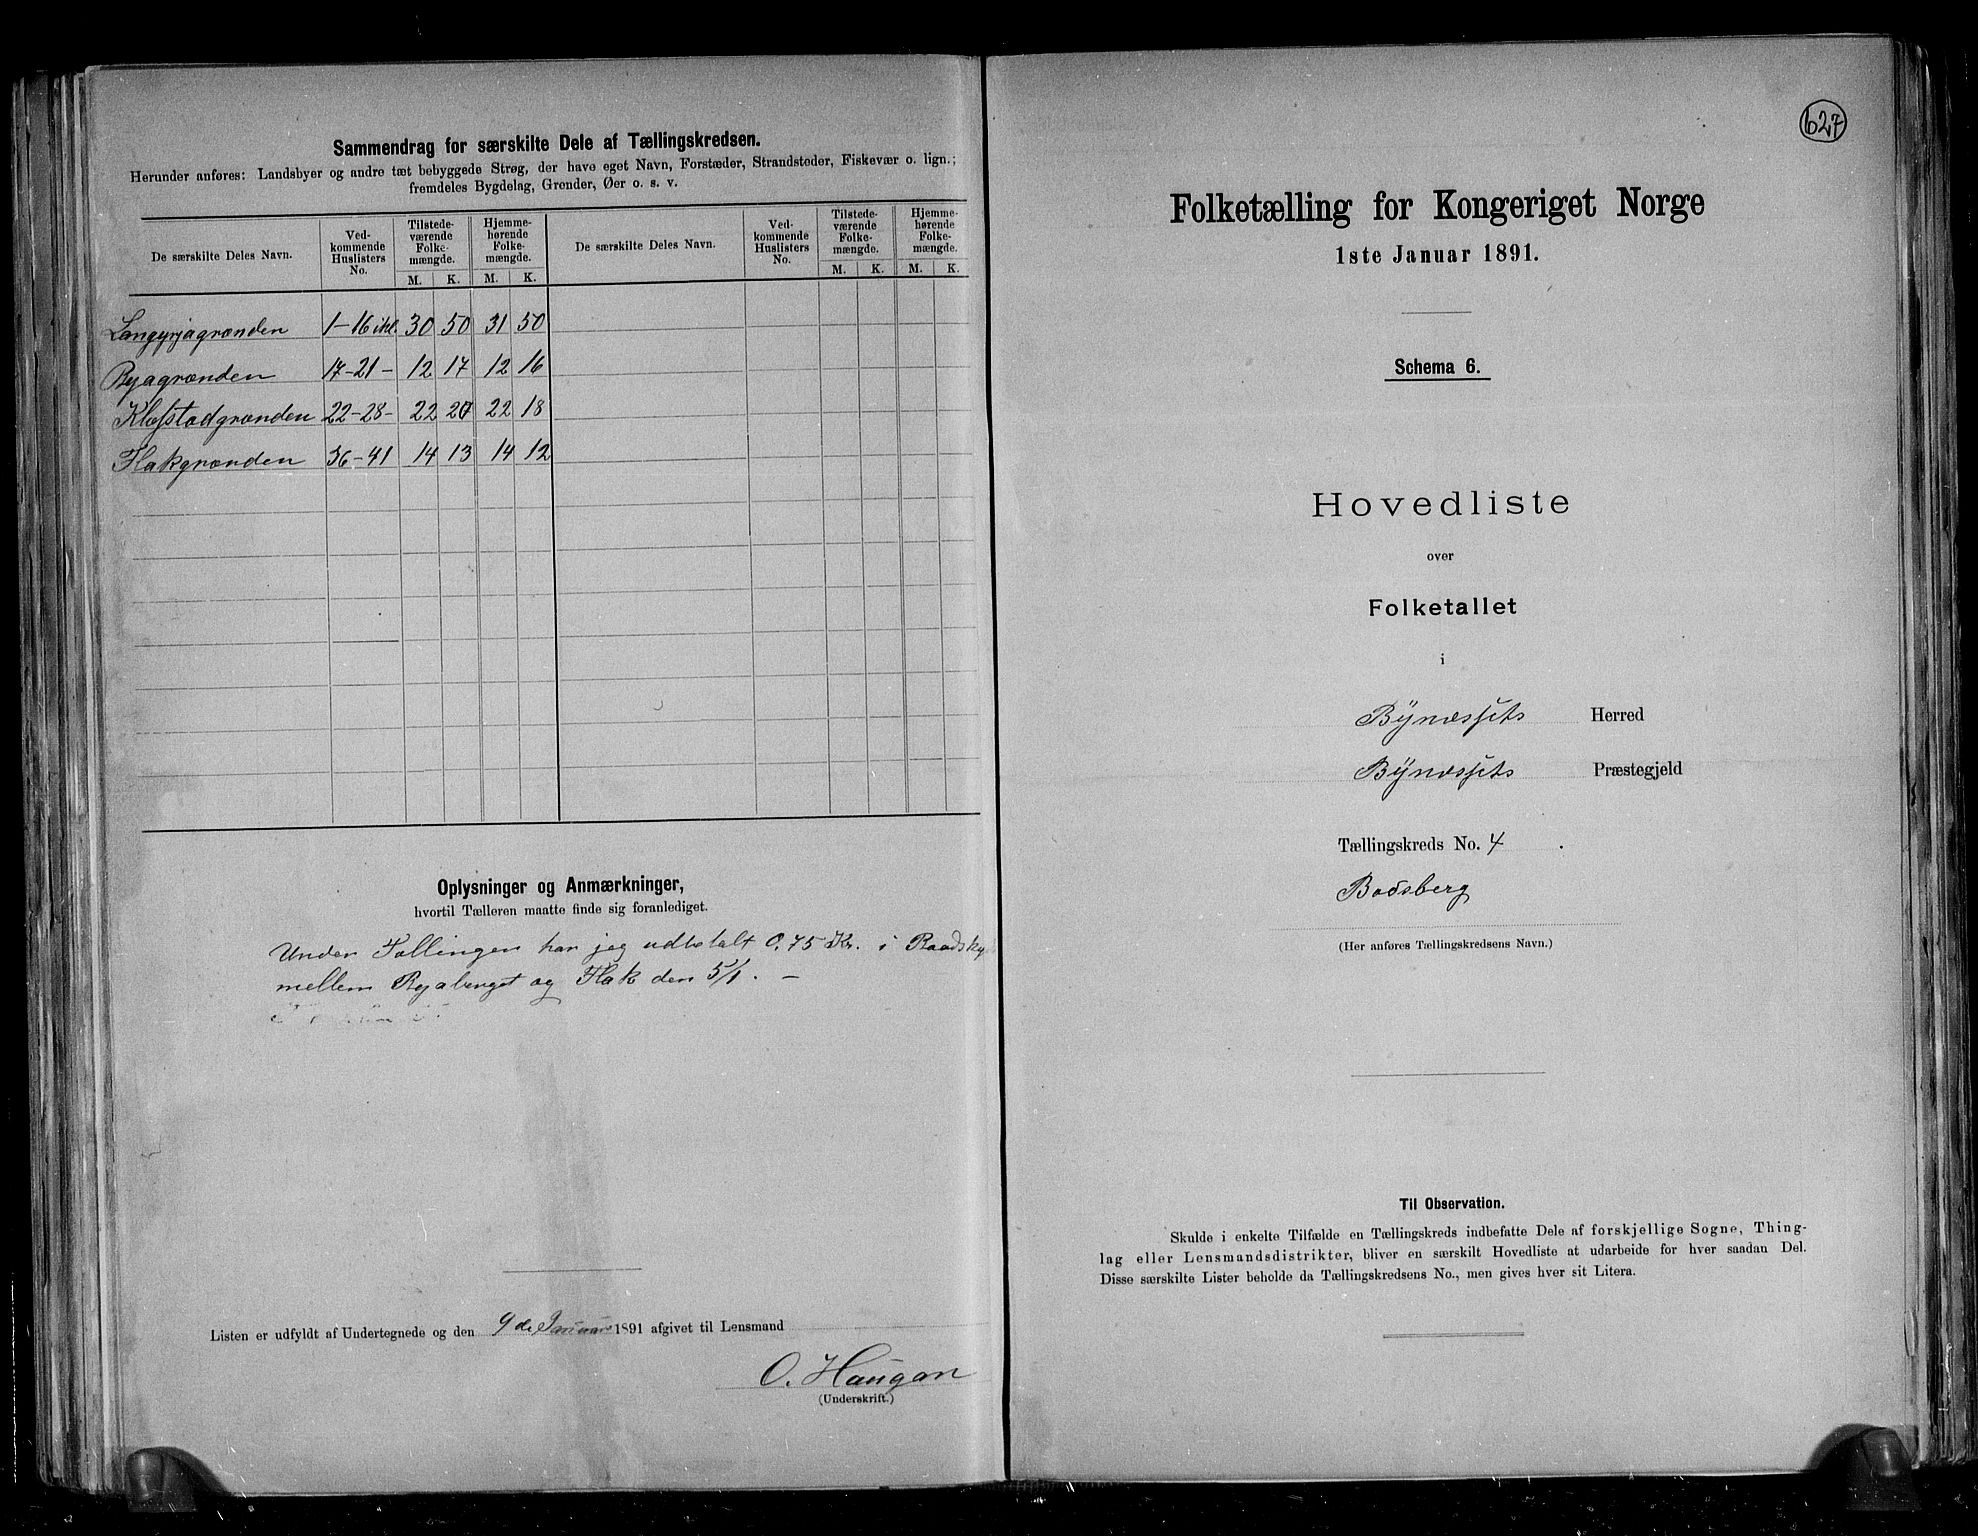 Sammendrag for særskilte Dele af Tællingskredsen.
Herunder anføres: Landsbyer og andre tæt bebyggede Strøg, der have eget Navn, Forstæder, Strandsteder, Fiskevær o. lign.;
fremdeles Bygdelag, Grender, Øer o. s. v.
De særskilte Deles Navn.
Ved-
kommende
Huslisters
No.
Tilstede-
værende
Folke-
mængde.
Hjemme-
hørende
Folke-
mængde.
M. K. M. K.
De særskilte Deles Navn.
Ved-
kommende
Huslisters
No.
Tilstede-
værende
Folke-
mængde.
Hjemme-
hørende
Folke-
mængde.
M. K. M. K.
Langyrjagrænden 1-16 ikl. 30 50 31 50
Ryagrænden 17-21- 12 17 12 16
Klefstadgrænden 22-28- 22 20 22 18
Flakgrænden 36-41 14 13 14 12
Oplysninger og Anmærkninger,
hvortil Tælleren maatte finde sig foranlediget.
Under Tællingen har jeg udbetalt 0,75 Kr. i
mellem Ryaberget og Flak den 5/1. —
Listen er udfyldt af Undertegnede og den 9de Januar 1891 afgivet til Lensmand
O. Haugan
(Underskrift.)
627
Folketælling for Kongeriget Norge
1ste Januar 1891.
Schema 6.
Hovedliste
over
Folketallet
i
Bynæssets Herred
Bynæssets Præstegjeld
Tællingskreds No. 4.
Bodsberg
(Her anføres Tællingskredsens Navn.)
Til Observation.
Skulde i enkelte Tilfælde en Tællingskreds indbefatte Dele af forskjellige Sogne, Thing-
lag eller Lensmandsdistrikter, bliver en særskilt Hovedliste at udarbeide for hver saadan Del.
Disse særskilte Lister beholde da Tællingskredsens No., men gives hver sit Litera.